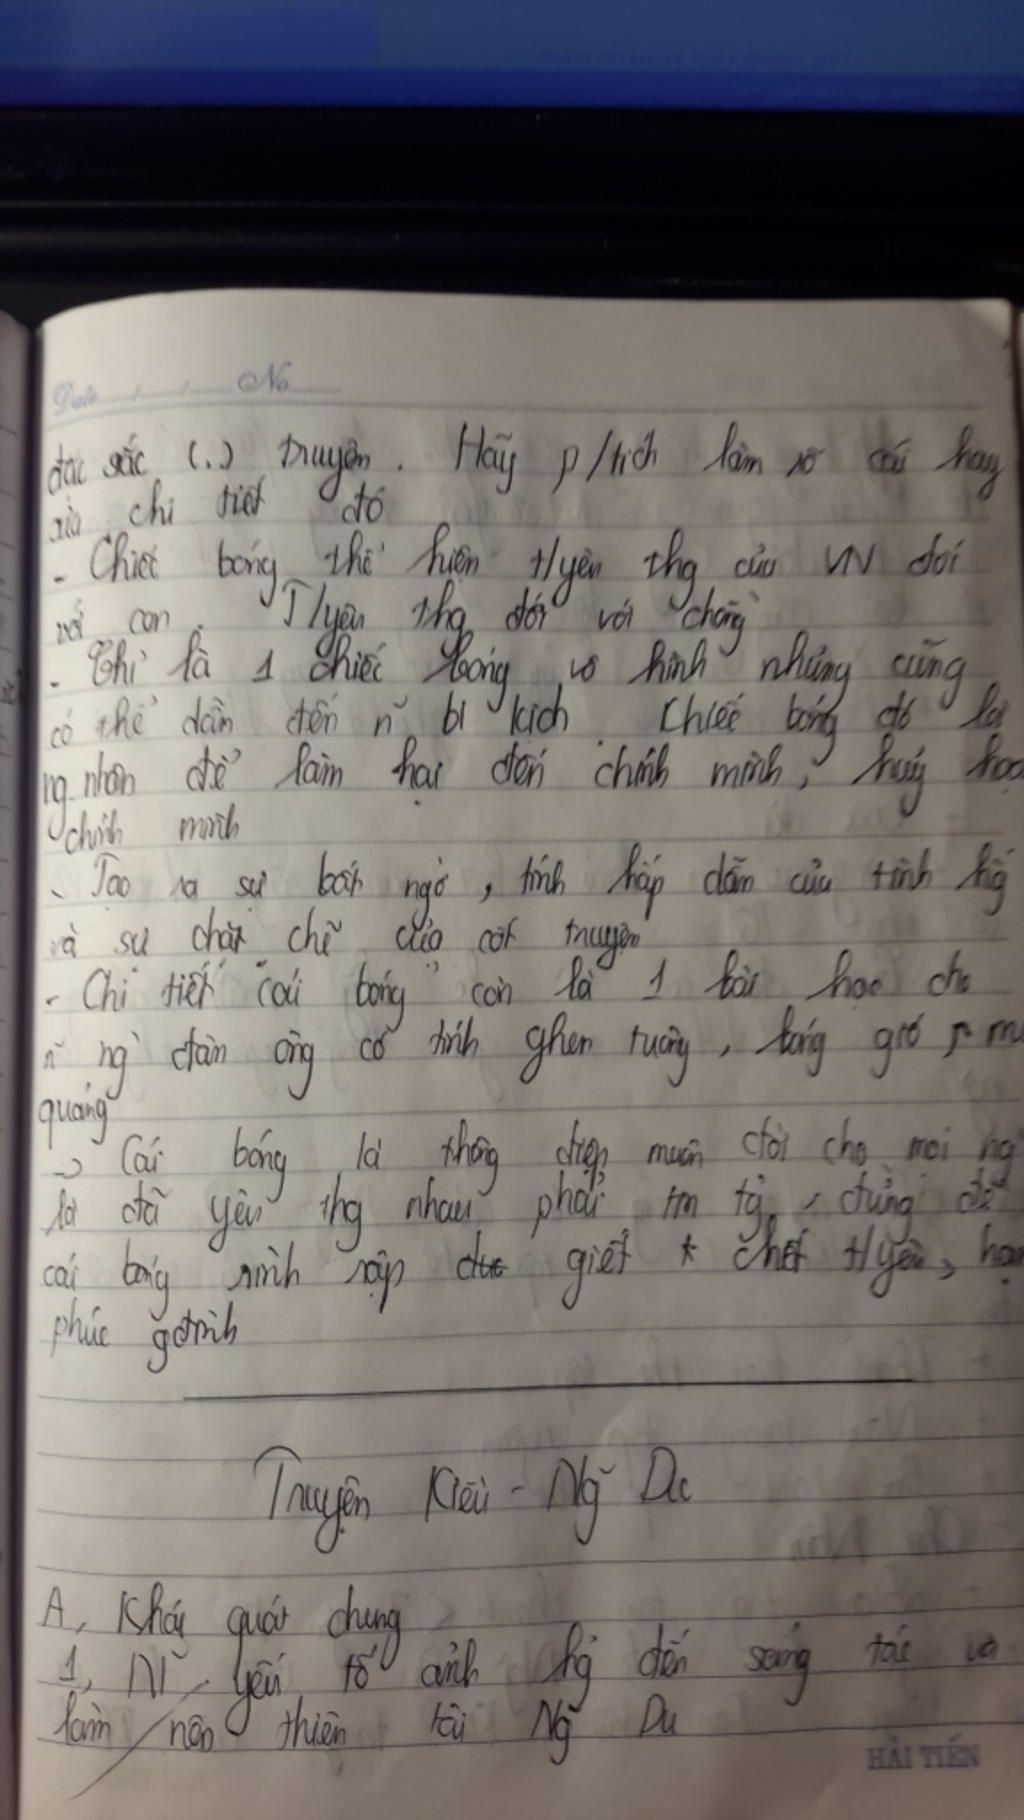 Date / / No
đặc sắc (.) truyện. Hãy p/tích làm rõ cái hay
của chi tiết đó
- Chiếc bóng thể hiện t/yêu thg của VN đối
với con. T/yêu thg đối với chồng
- Chỉ là 1 chiếc bóng vô hình nhưng cũng
có thể dẫn đến n~ bi kịch. Chiếc bóng đó là
ng. nhân để làm hại đến chính mình, huỷ hoại
chính mình
- Tạo ra sự bất ngờ, tính hấp dẫn của tình hg
và sự chặt chẽ của cốt truyện
- Chi tiết "cái bóng" còn là 1 bài học cho
n~ ng` đàn ông có tính ghen tuông, bóng gió, mù
quáng
-> Cái bóng là thông điệp muôn đời cho mọi ng`
là đã yêu thg nhau phải tin tg, đừng để
cái bóng rình rập giết chết t/yêu, hạnh
phúc gđình
Truyện Kiều - Ng~ Du
A, Khái quát chung
1, N~ yếu tố ảnh hg đến sáng tác và
làm nên thiên tài Ng~ Du
HẢI TIẾN